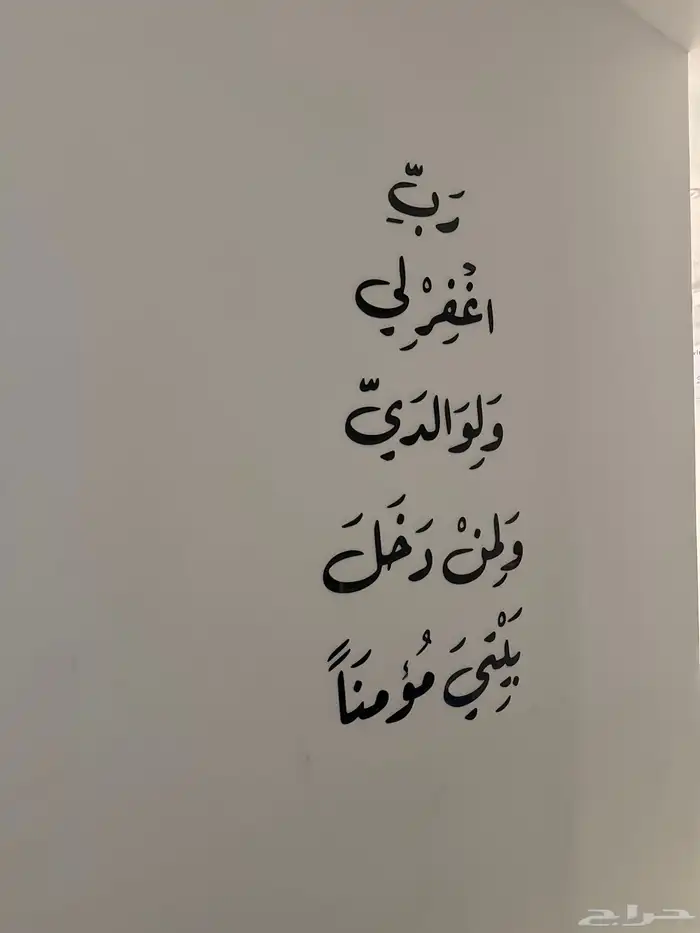 رَبِّ
اغْفِرْ لِي
وَلِوَالدَيّ
وَلِمنْ دَخَلَ
بَيْتِيَ مُؤمنَاً
حراج